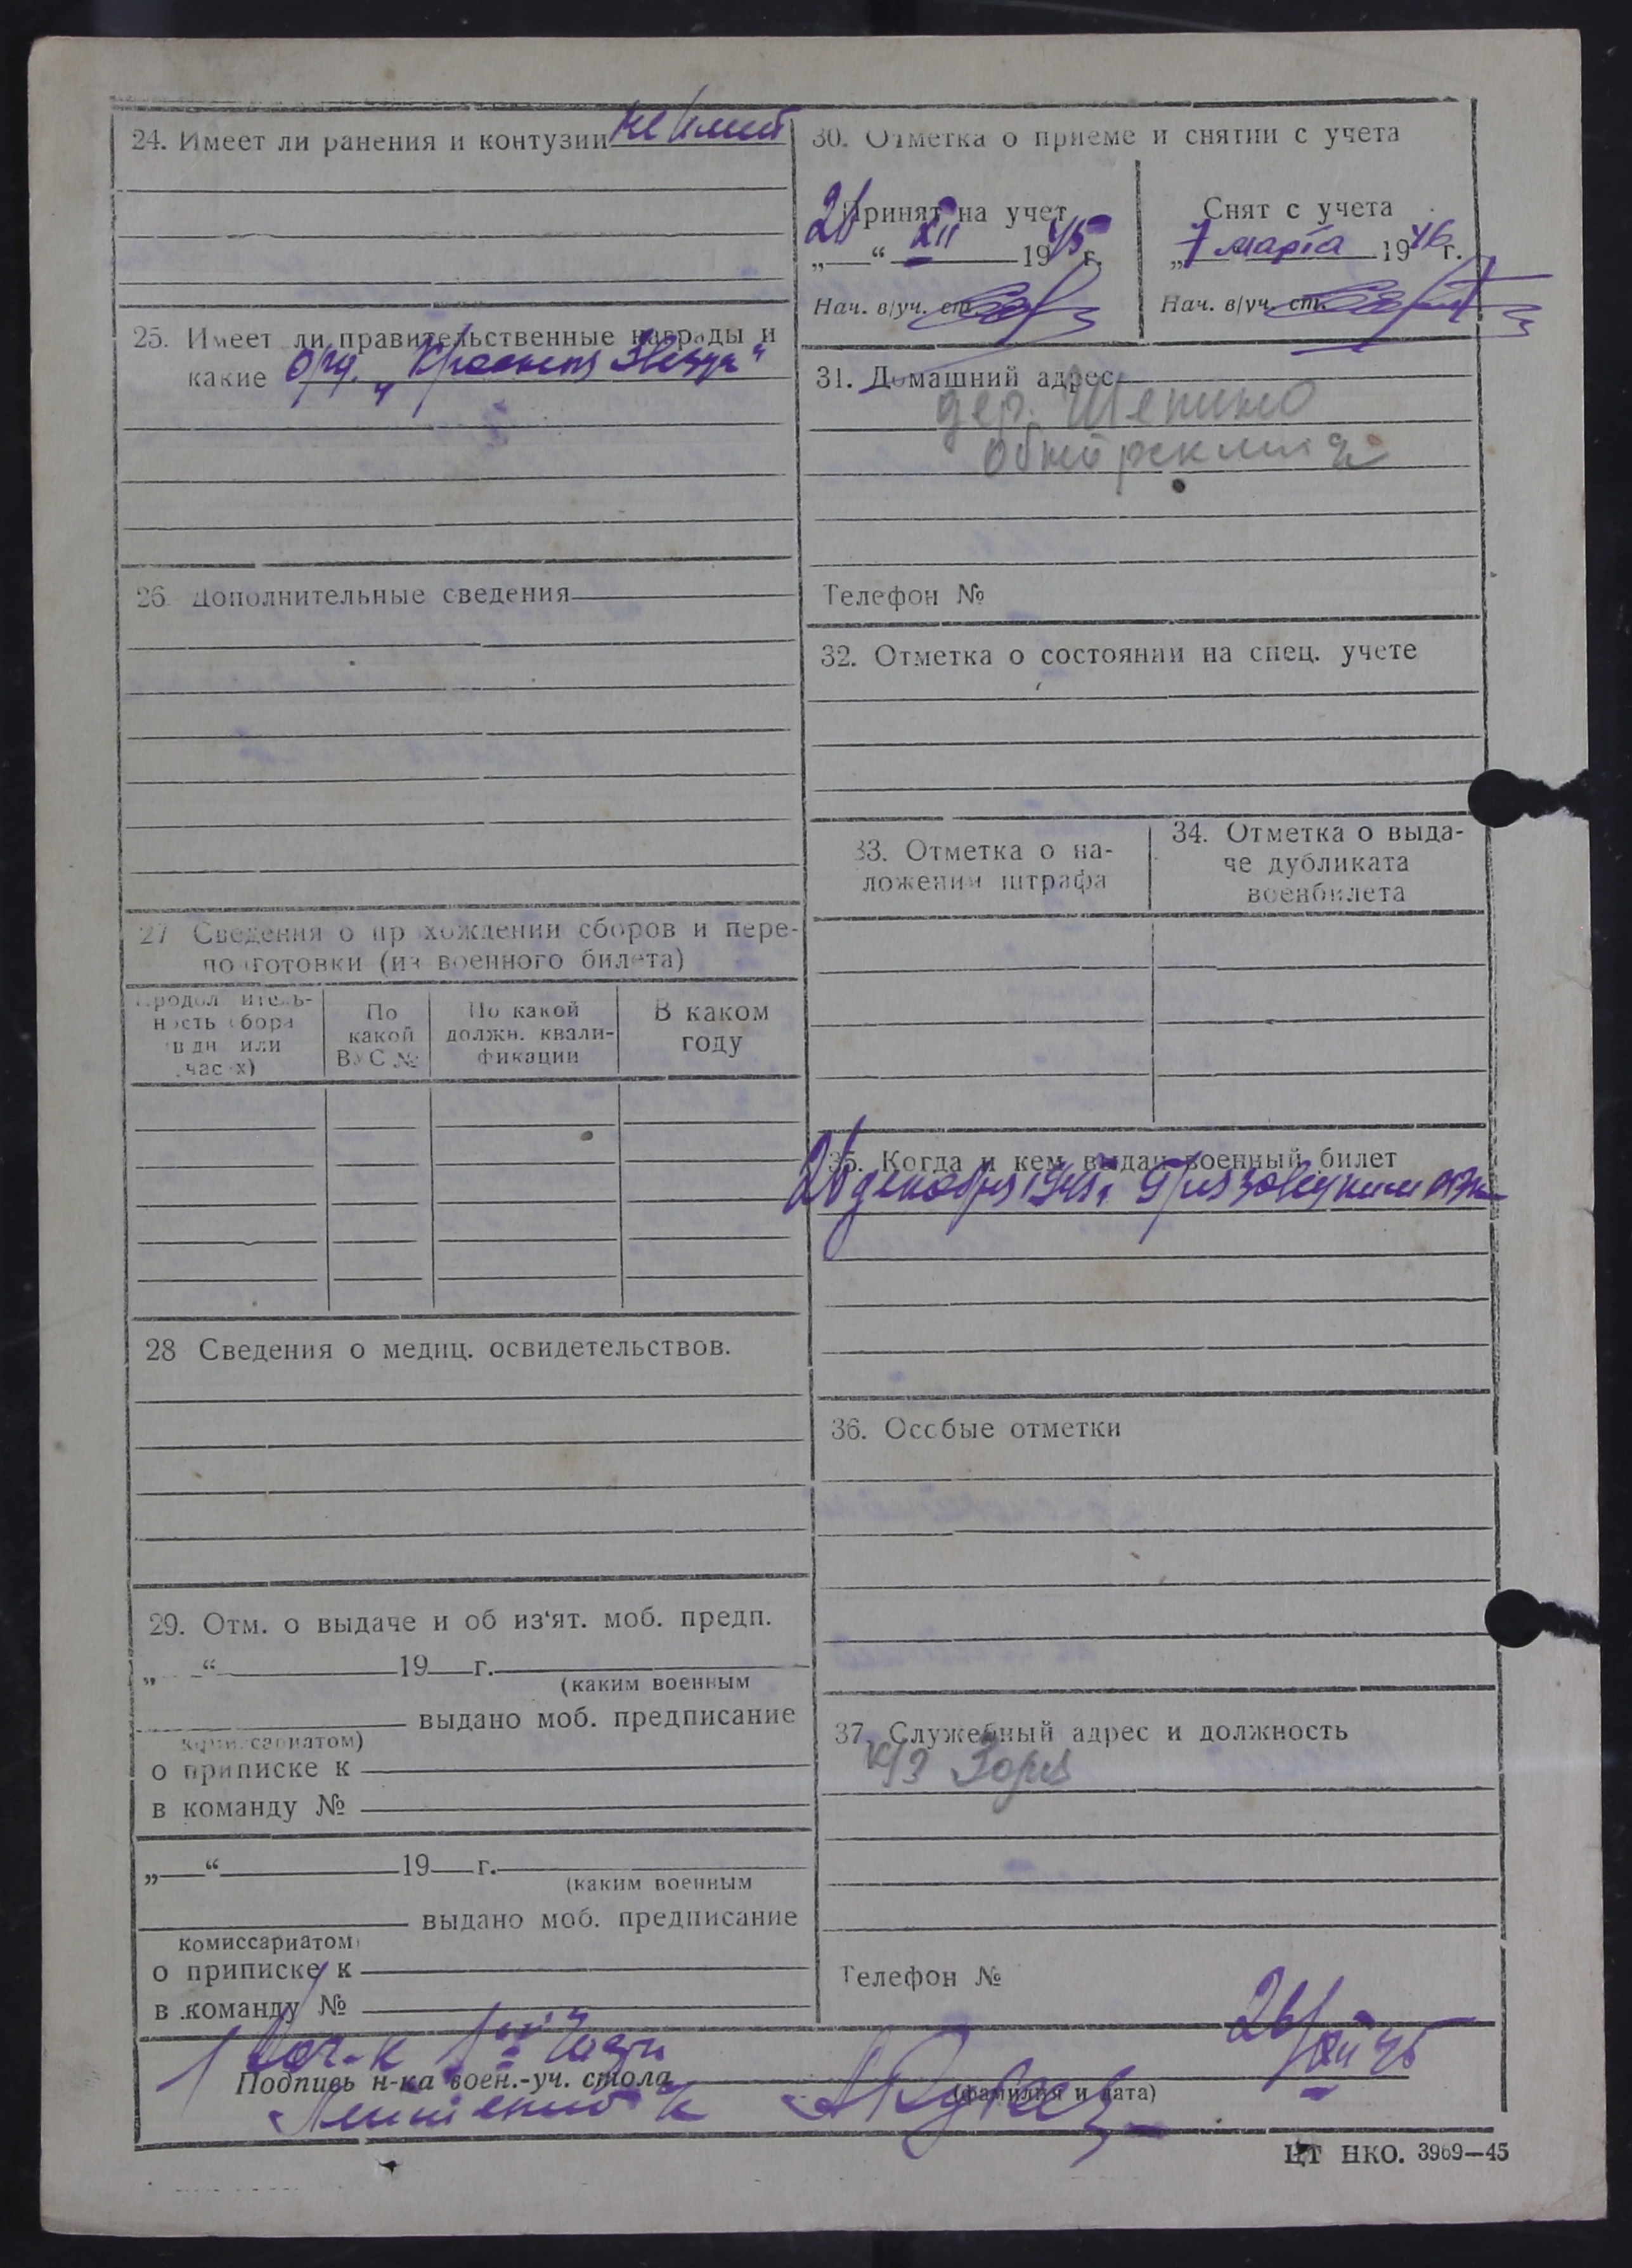 24. Имеет ли ранения и контузии не имеет
25. Имеет ли правительственные награды и
какие орд. „Красная Звезда“
26. Дополнительные сведения
27 Сведения о пр хождении сборов и пере-
по готовки (из военного билета)
Продол итель-
ность сбора
в дн или
час х)
По
какой
ВУС №
По какой
должн. квали-
фикации
В каком
году
28 Сведения о медиц. освидетельствов.
29. Отм. о выдаче и об из‘ят. моб. предп.
„ “ 19 г.
(каким военным
выдано моб. предписание
комиссариатом)
о приписке к
в команду №
„ “ 19 г.
(каким военным
выдано моб. предписание
комиссариатом)
о приписке к
в команду №
30. Отметка о приеме и снятии с учета
Принят на учет
26 „ “ XII 1945 г.
Нач. в/уч. ст.
Снят с учета
„7 марта 1946 г.
Нач. в/уч. ст.
31. Домашний адрес
дер. Шепино
Телефон №
32. Отметка о состоянии на спец. учете
33. Отметка о на-
ложении штрафа
34. Отметка о выда-
че дубликата
военбилета
35. Когда и кем выдан военный билет
26 декабря 1945 г. Грязовецким РВК
36. Особые отметки
37. Служебный адрес и должность
к/з Заря
Телефон №
Нач-к 1ой части 26/XII 45
Подпись н-ка воен.-уч. стола
(фамилия и дата)
ЦТ НКО. 3969—45